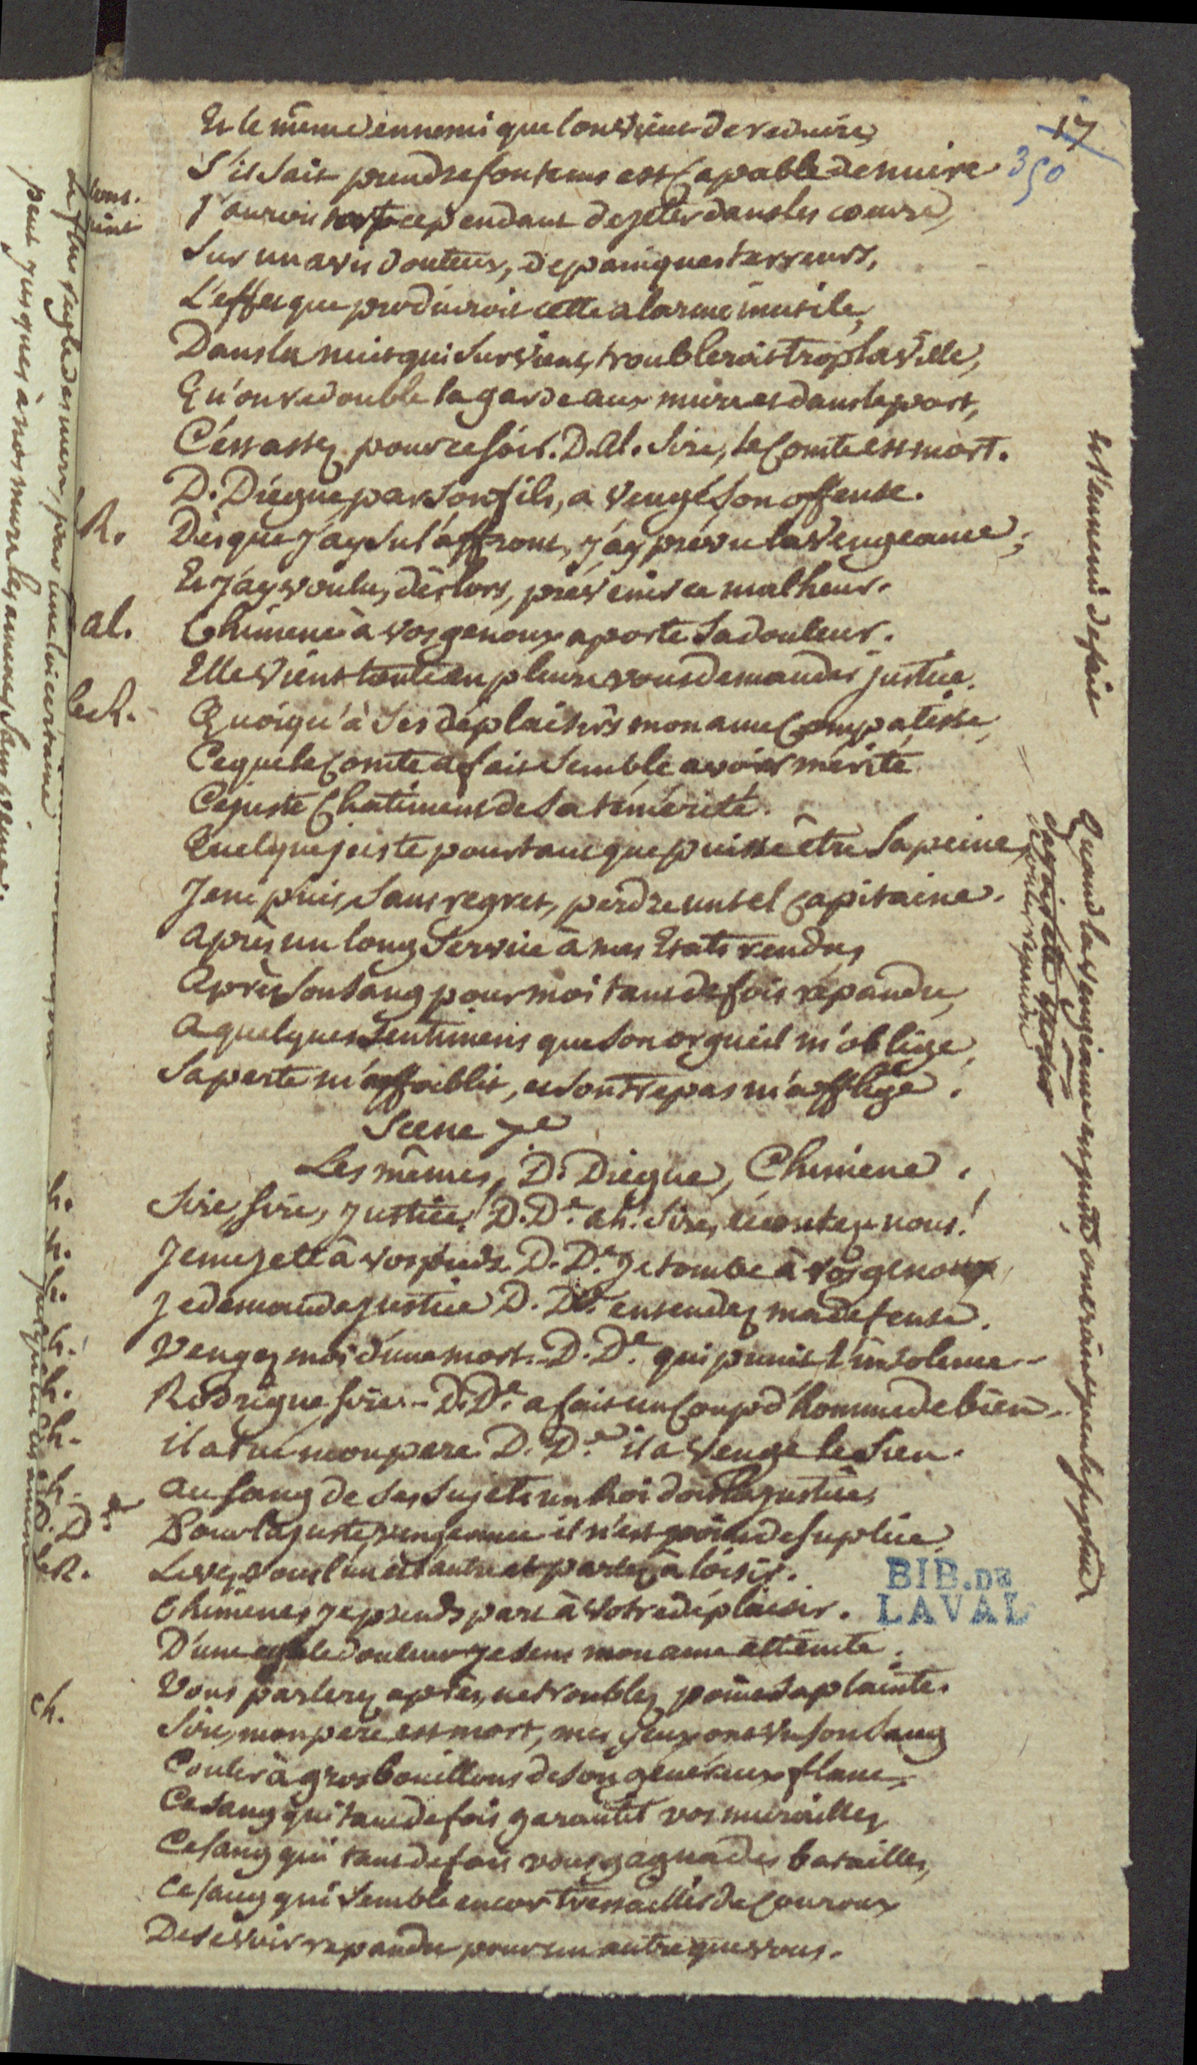 17
350
Et le même ennemi que l'on vient de reduire,
S'il sait prendre son tems est capable de nuire
J'aurois tort cependant de jeter dans les coeurs,
Sur un avis douteux, de paniques terreurs,
L'effet que produiroit cette alarme inutile,
Dans la nuit qui survient, troubleroit trop la ville,
Qu'on redouble la garde aux murs et dans le port,
C'est assez pour ce soir. D. Al. Sire, le Comte est mort.
D. Diégue par son fils, a vengé son offense.
R. Dès que j'ay su l'affront, j'ay prévu la vengeance;
Et j'ay voulu, dès lors, prévenir ce malheur.
al. Chimene à vos genoux aporte sa douleur.
Elle vient toute en pleurs vous demander justice.
le R. Quoiqu'à ses déplaisirs mon ame compatisse,
Ce que le Comte a fait semble avoir mérité
Ce juste Chatiment de sa témérité.
Quelque juste pourtant que puisse être sa peine
Je ne puis, sans regret, perdre un tel capitaine.
après un long service à mes Etats rendu,
Après son sang pour moi tant de fois répandu,
A quelques sentimens que son orgueil m'oblige,
Sa perte m'affoiblit, et son trepas m'afflige.
Scene 7e
Les mêmes, D. Diegue, Chimene.
Sire, Sire, justice! D. De. ah! Sire, écoutez nous!
Je me jette à vos pieds. D. De. Je tombe à vos genoux
Je demande justice D. De. entendez ma defense.
Vengez moi d'une mort.. D. De. qui punit l'insolence..
Rodrigue, Sire.. D. De. a fait un coup d'homme de bien.
Ch. il a tué mon pere. D. De. il a vengé le sien.
Ch. Au sang de ses sujets un Roi doit la justice,
D. De Pour la juste vengeance il n'est point de suplice.
le R. Levez vous l'un et l'autre et parlez à loisir.
Chimene, je prends part à votre déplaisir.
D'une egale douleur je sens mon ame atteinte.
Vous parlerez après, ne troublez point sa plainte.
ch. Sire, mon pere est mort, mes yeux ont vu son sang
Couler à gros bouillons de son généreux flanc,
Ce sang qui tant de fois garantit vos murailles,
Ce sang qui tant de fois vous gagna des batailles,
Ce sang qui semble encor tressaillir de couroux
De se voir repandu pour un autre que vous.
et l'ennemi defait
Quand la vengeance est juste, on ne craint point le suplice
BIB. DE
LAVAL
par une loi certaine
peut jusques à nos murs les amener sans peine.